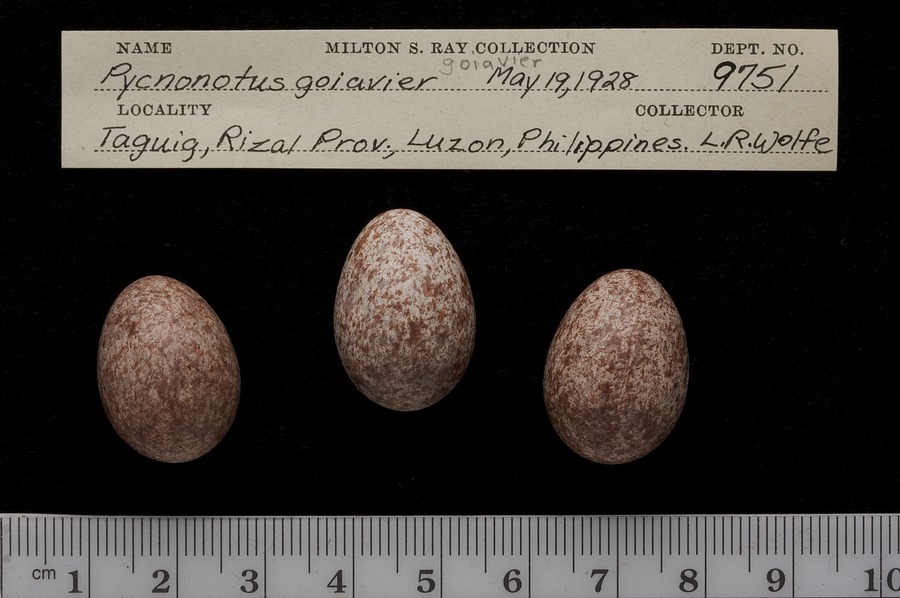 NAME MILTON S. RAY COLLECTION DEPT. NO.
goiavier
Pycnonotus goiavier May 19, 1928 9751
LOCALITY COLLECTOR
Taguig, Rizal Prov., Luzon, Philippines. L.R. Wolfe
cm 1 2 3 4 5 6 7 8 9 10